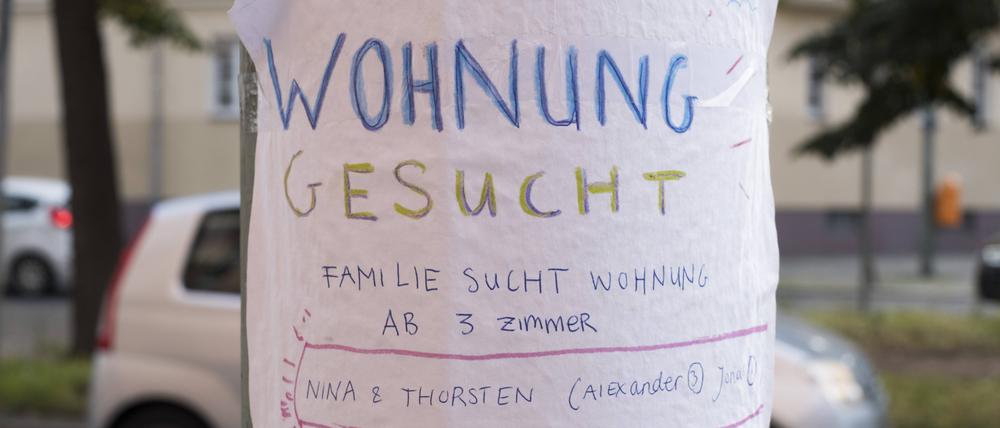 WOHNUNG
GESUCHT
FAMILIE SUCHT WOHNUNG
AB 3 ZIMMER
NINA & THORSTEN (Alexander ③ Jona ①